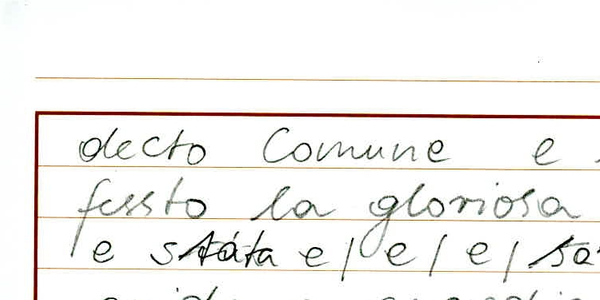 decto Comune e
fessto la gloriosa
e státa e/ e/ e/